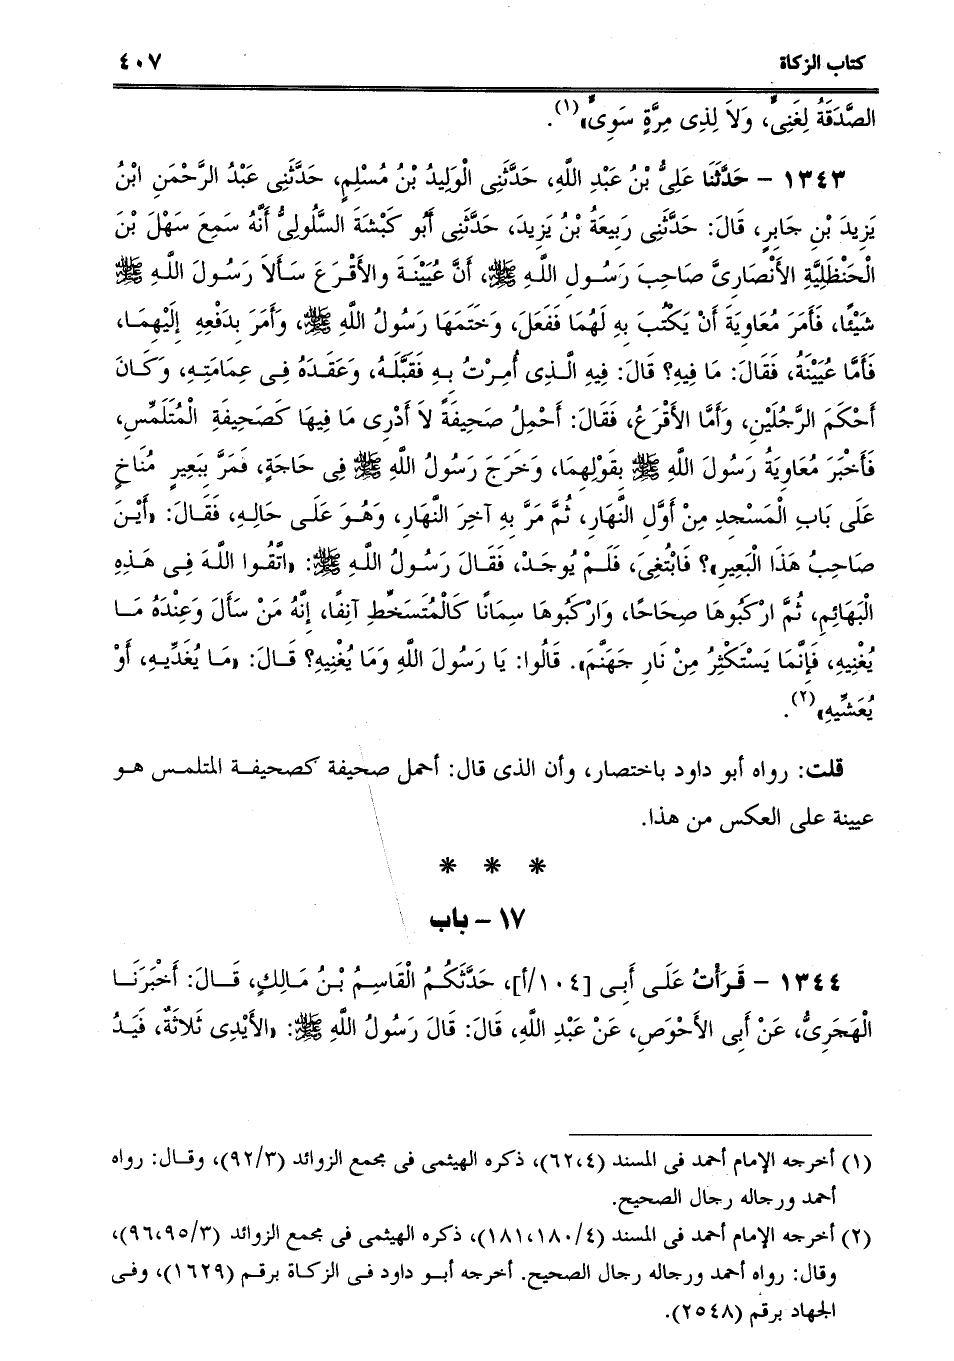 كتاب الزكاة ٤٠٧
الصَّدَقَةُ لِغَنِىٍّ، وَلاَ لِذِى مِرَّةٍ سَوِىٍّ»(١).
١٣٤٣ - حَدَّثَنَا عَلِىُّ بْنُ عَبْدِ اللَّهِ، حَدَّثَنِى الْوَلِيدُ بْنُ مُسْلِمٍ، حَدَّثَنِى عَبْدُ الرَّحْمَنِ ابْنُ
يَزِيدَ بْنِ جَابِرٍ، قَالَ: حَدَّثَنِى رَبِيعَةُ بْنُ يَزِيدَ، حَدَّثَنِى أَبُو كَبْشَةَ السَّلُولِىُّ أَنَّهُ سَمِعَ سَهْلَ بْنَ
الْحَنْظَلِيَّةِ الأَنْصَارِىَّ صَاحِبَ رَسُولِ اللَّهِ ﷺ، أَنَّ عُيَيْنَةَ والأَقْرَعَ سَأَلاَ رَسُولَ اللَّهِ ﷺ
شَيْئًا، فَأَمَرَ مُعَاوِيَةَ أَنْ يَكْتُبَ بِهِ لَهُمَا فَفَعَلَ، وَخَتَمَهَا رَسُولُ اللَّهِ ﷺ، وَأَمَرَ بِدَفْعِهِ إِلَيْهِمَا،
فَأَمَّا عُيَيْنَةُ، فَقَالَ: مَا فِيهِ؟ قَالَ: فِيهِ الَّذِى أُمِرْتُ بِهِ فَقَبَّلَهُ، وَعَقَدَهُ فِى عِمَامَتِهِ، وَكَانَ
أَحْكَمَ الرَّجُلَيْنِ، وَأَمَّا الأَقْرَعُ، فَقَالَ: أَحْمِلُ صَحِيفَةً لاَ أَدْرِى مَا فِيهَا كَصَحِيفَةِ الْمُتَلَمِّسِ،
فَأَخْبَرَ مُعَاوِيَةُ رَسُولَ اللَّهِ ﷺ بِقَوْلِهِمَا، وَخَرَجَ رَسُولُ اللَّهِ ﷺ فِى حَاجَةٍ، فَمَرَّ بِبَعِيرٍ مُنَاخٍ
عَلَى بَابِ الْمَسْجِدِ مِنْ أَوَّلِ النَّهَارِ، ثُمَّ مَرَّ بِهِ آخِرَ النَّهَارِ، وَهُوَ عَلَى حَالِهِ، فَقَالَ: «أَيْنَ
صَاحِبُ هَذَا الْبَعِيرِ»؟ فَابْتُغِىَ، فَلَمْ يُوجَدْ، فَقَالَ رَسُولُ اللَّهِ ﷺ: «اتَّقُوا اللَّهَ فِى هَذِهِ
الْبَهَائِمِ، ثُمَّ ارْكَبُوهَا صِحَاحًا، وَارْكَبُوهَا سِمَانًا كَالْمُتَسَخِّطِ آنِفًا، إِنَّهُ مَنْ سَأَلَ وَعِنْدَهُ مَا
يُغْنِيهِ، فَإِنَّمَا يَسْتَكْثِرُ مِنْ نَارِ جَهَنَّمَ». قَالُوا: يَا رَسُولَ اللَّهِ وَمَا يُغْنِيهِ؟ قَالَ: «مَا يُغَدِّيهِ، أَوْ
يُعَشِّيهِ»(٢).
قلت: رواه أبو داود باختصار، وأن الذى قال: أحمل صحيفة كصحيفة المتلمس هو
عيينة على العكس من هذا.
* * *
١٧ - باب
١٣٤٤ - قَرَأْتُ عَلَى أَبِى [١٠٤/أ]، حَدَّثَكُمُ الْقَاسِمُ بْنُ مَالِكٍ، قَالَ: أَخْبَرَنَا
الْهَجَرِىُّ، عَنْ أَبِى الأَحْوَصِ، عَنْ عَبْدِ اللَّهِ، قَالَ: قَالَ رَسُولُ اللَّهِ ﷺ: «الأَيْدِى ثَلاَثَةٌ، فَيَدُ
(١) أخرجه الإمام أحمد فى المسند (٦٢،٤)، ذكره الهيثمى فى مجمع الزوائد (٩٢/٣)، وقال: رواه
أحمد ورجاله رجال الصحيح.
(٢) أخرجه الإمام أحمد فى المسند (١٨١،١٨٠/٤)، ذكره الهيثمى فى مجمع الزوائد (٩٦،٩٥/٣)،
وقال: رواه أحمد ورجاله رجال الصحيح. أخرجه أبو داود فى الزكاة برقم (١٦٢٩)، وفى
الجهاد برقم (٢٥٤٨).